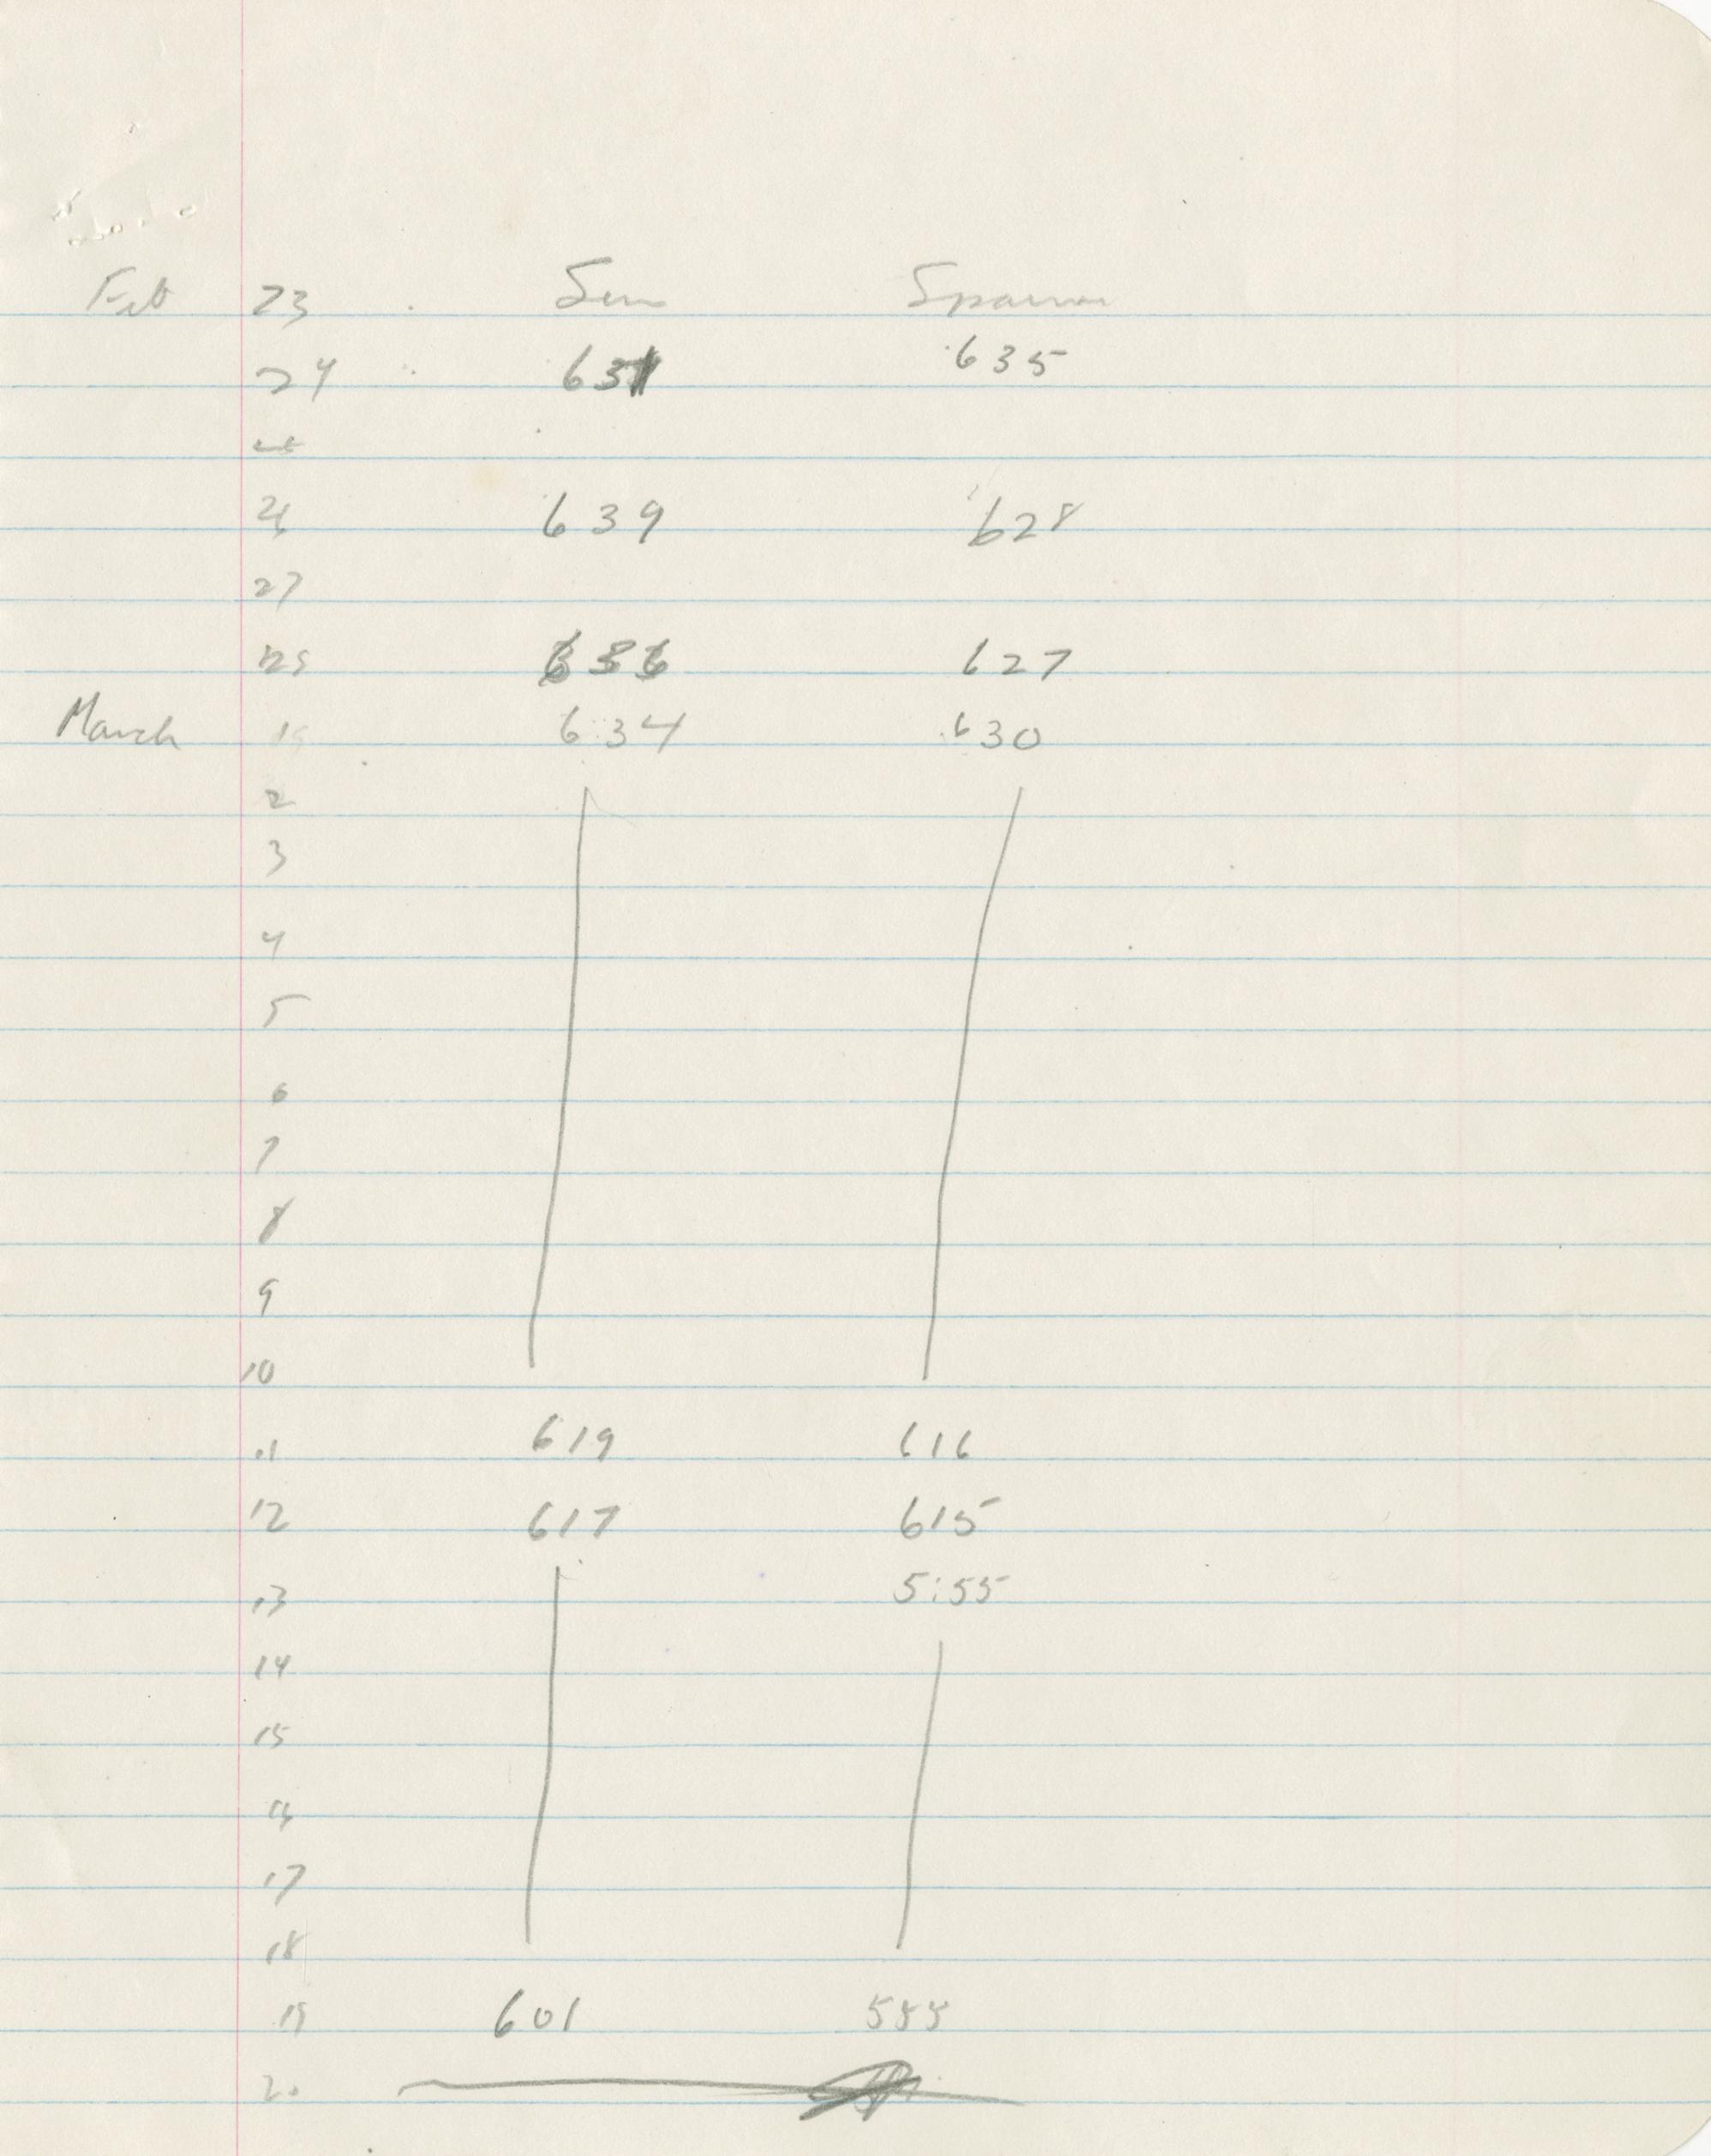 Feb 23 Sun Sparrow
24 635
26 639 628
27
627
March 6:34 630
2
3
4
5
6
7
8
9
10
11 619 616
12 617 615
13 5:55
14
15
16
17
18
19 601
20